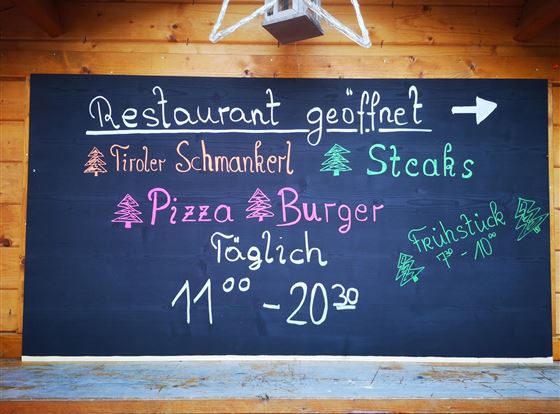 Restaurant geöffnet →
Tiroler Schmankerl Steaks
Pizza Burger
Täglich
11⁰⁰ - 20³⁰
Frühstück
7³⁰ - 10⁰⁰